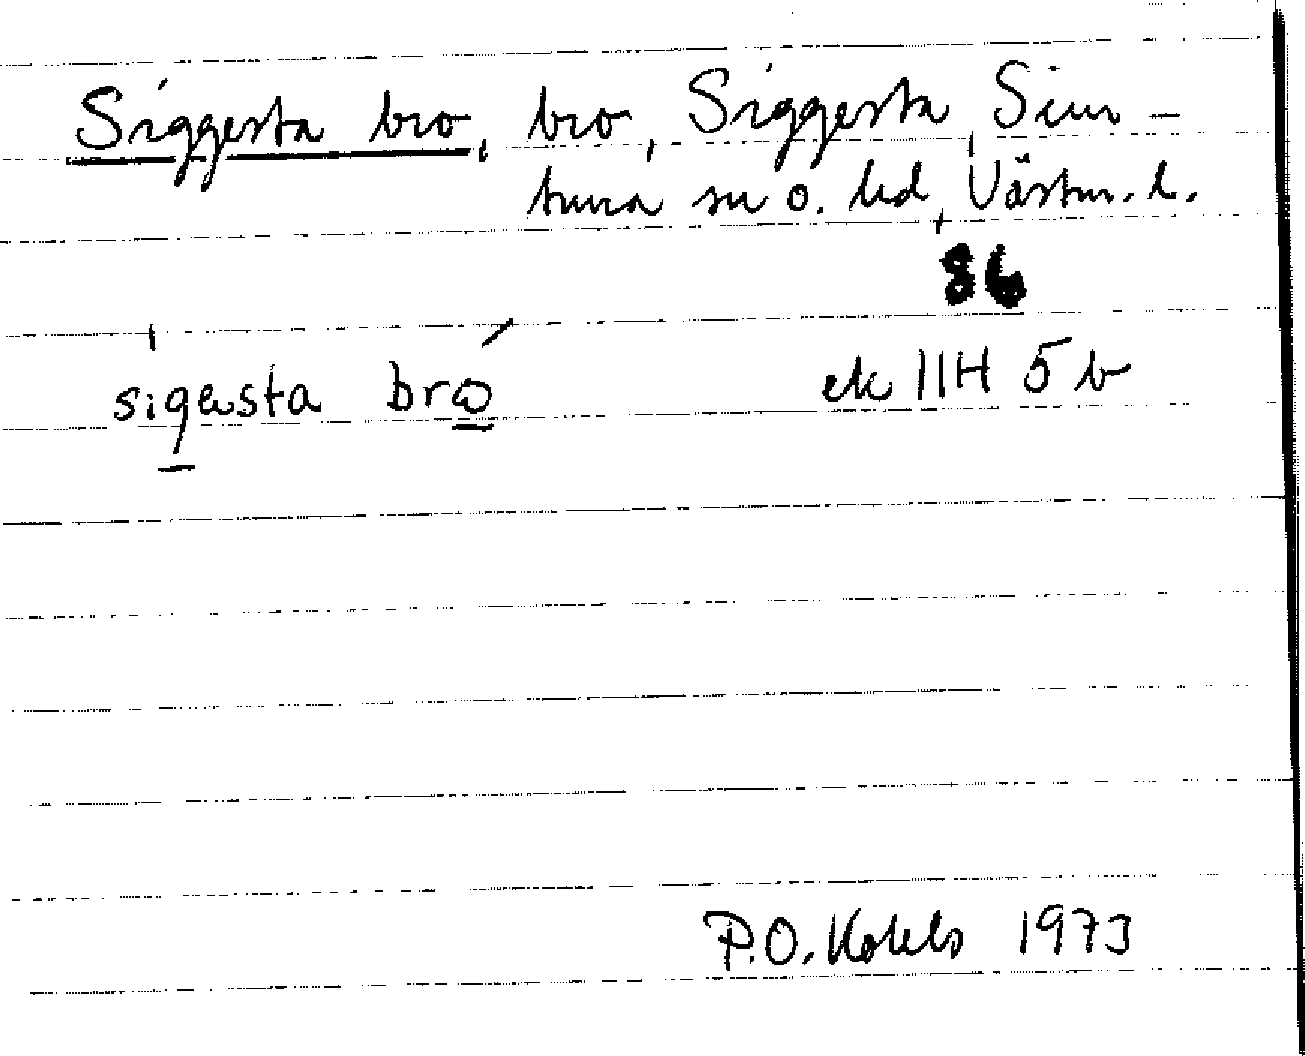 Siggesta bro, bro, Siggesta, Sim-
tuna sn o. hd, Västm. l.
86
sigesta bro ek 11H 5 b
P.O. 1973